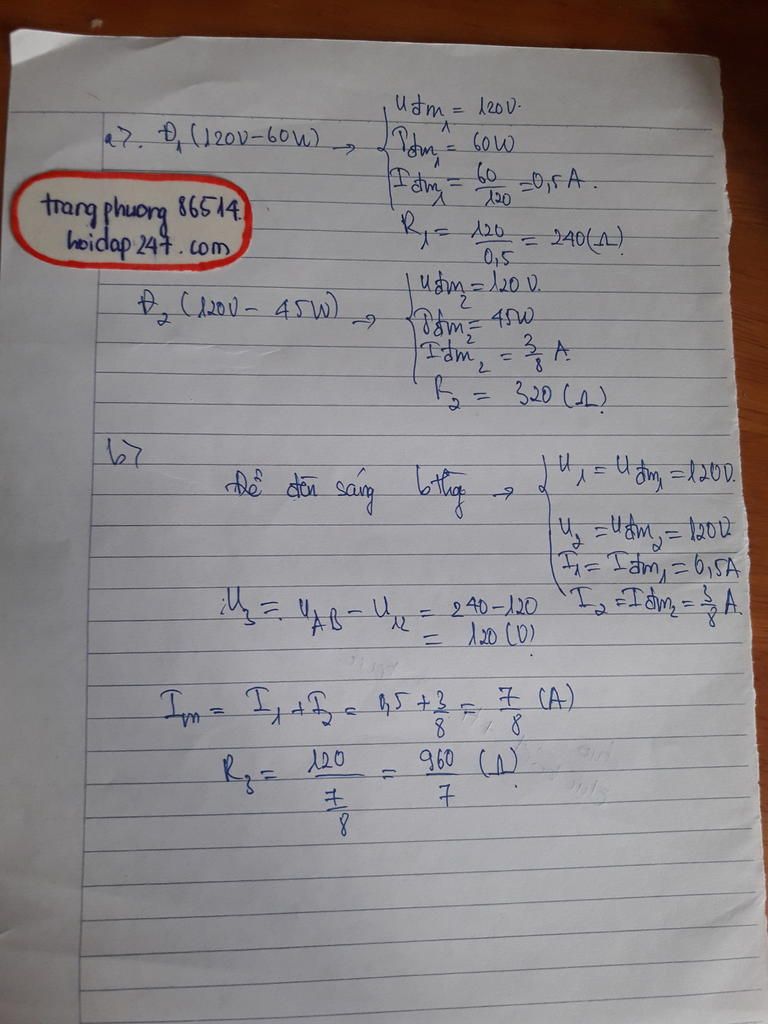 a>. Đ₁ (120V-60W) → { Uđm₁ = 120V.
Pđm₁ = 60W
Iđm₁ = 60/120 = 0,5A.
R₁ = 120/0,5 = 240(Ω)
trangphuong 86514.
hoidap247.com
Đ₂ (120V - 45W) → { Uđm₂ = 120V.
Pđm₂ = 45W
Iđm₂ = 3/8 A.
R₂ = 320 (Ω)
b>
Để đèn sáng bthg → { U₁ = Uđm₁ = 120V.
U₂ = Uđm₂ = 120V
I₁ = Iđm₁ = 0,5A
I₂ = Iđm₂ = 3/8 A.
U₃ = U_AB - U₁₂ = 240 - 120
= 120 (V)
Iₘ = I₁ + I₂ = 0,5 + 3/8 = 7/8 (A)
R₃ = 120/(7/8) = 960/7 (Ω)